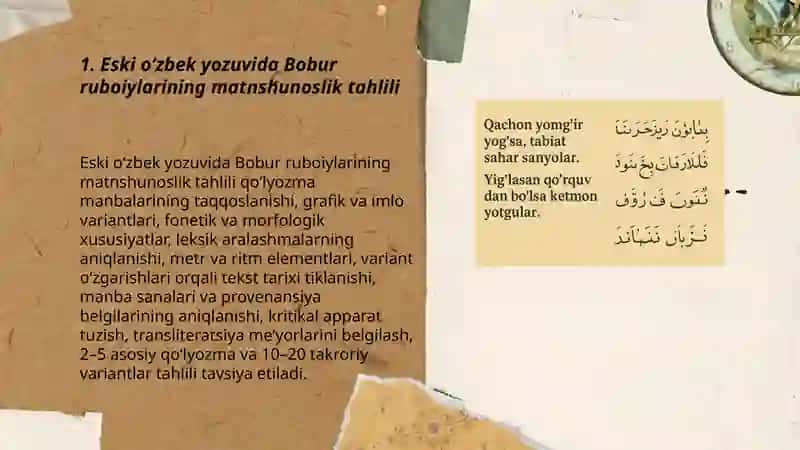 1. Eski o‘zbek yozuvida Bobur
ruboiylarining matnshunoslik tahlili
Eski o‘zbek yozuvida Bobur ruboiylarining
matnshunoslik tahlili qo‘lyozma
manbalarining taqqoslanishi, grafik va imlo
variantlari, fonetik va morfologik
xususiyatlar, leksik aralashmalarning
aniqlanishi, metr va ritm elementlari, variant
o‘zgarishlari orqali tekst tarixi tiklanishi,
manba sanalari va provenansiya
belgilarining aniqlanishi, kritikal apparat
tuzish, transliteratsiya me’yorlarini belgilash,
2–5 asosiy qo‘lyozma va 10–20 takroriy
variantlar tahlili tavsiya etiladi.
Qachon yomg‘ir
yog‘sa, tabiat
sahar sanyolar.
Yig‘lasan qo‘rquv
dan bo‘lsa ketmon
yotgular.